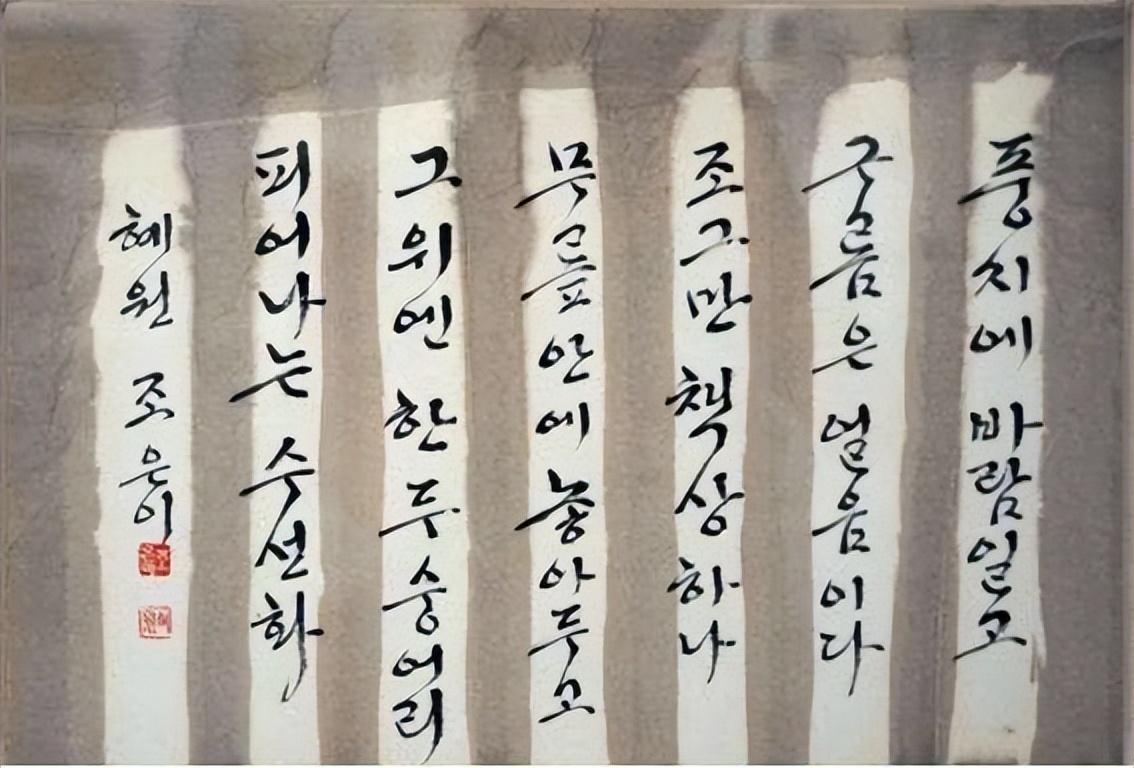 풍지에 바람일고
구름은 얼음이다
조그만 책상 하나
무릎 안에 놓아두고
그 위엔 한 두 숭어리
피어나는 수선화
혜원 조은이